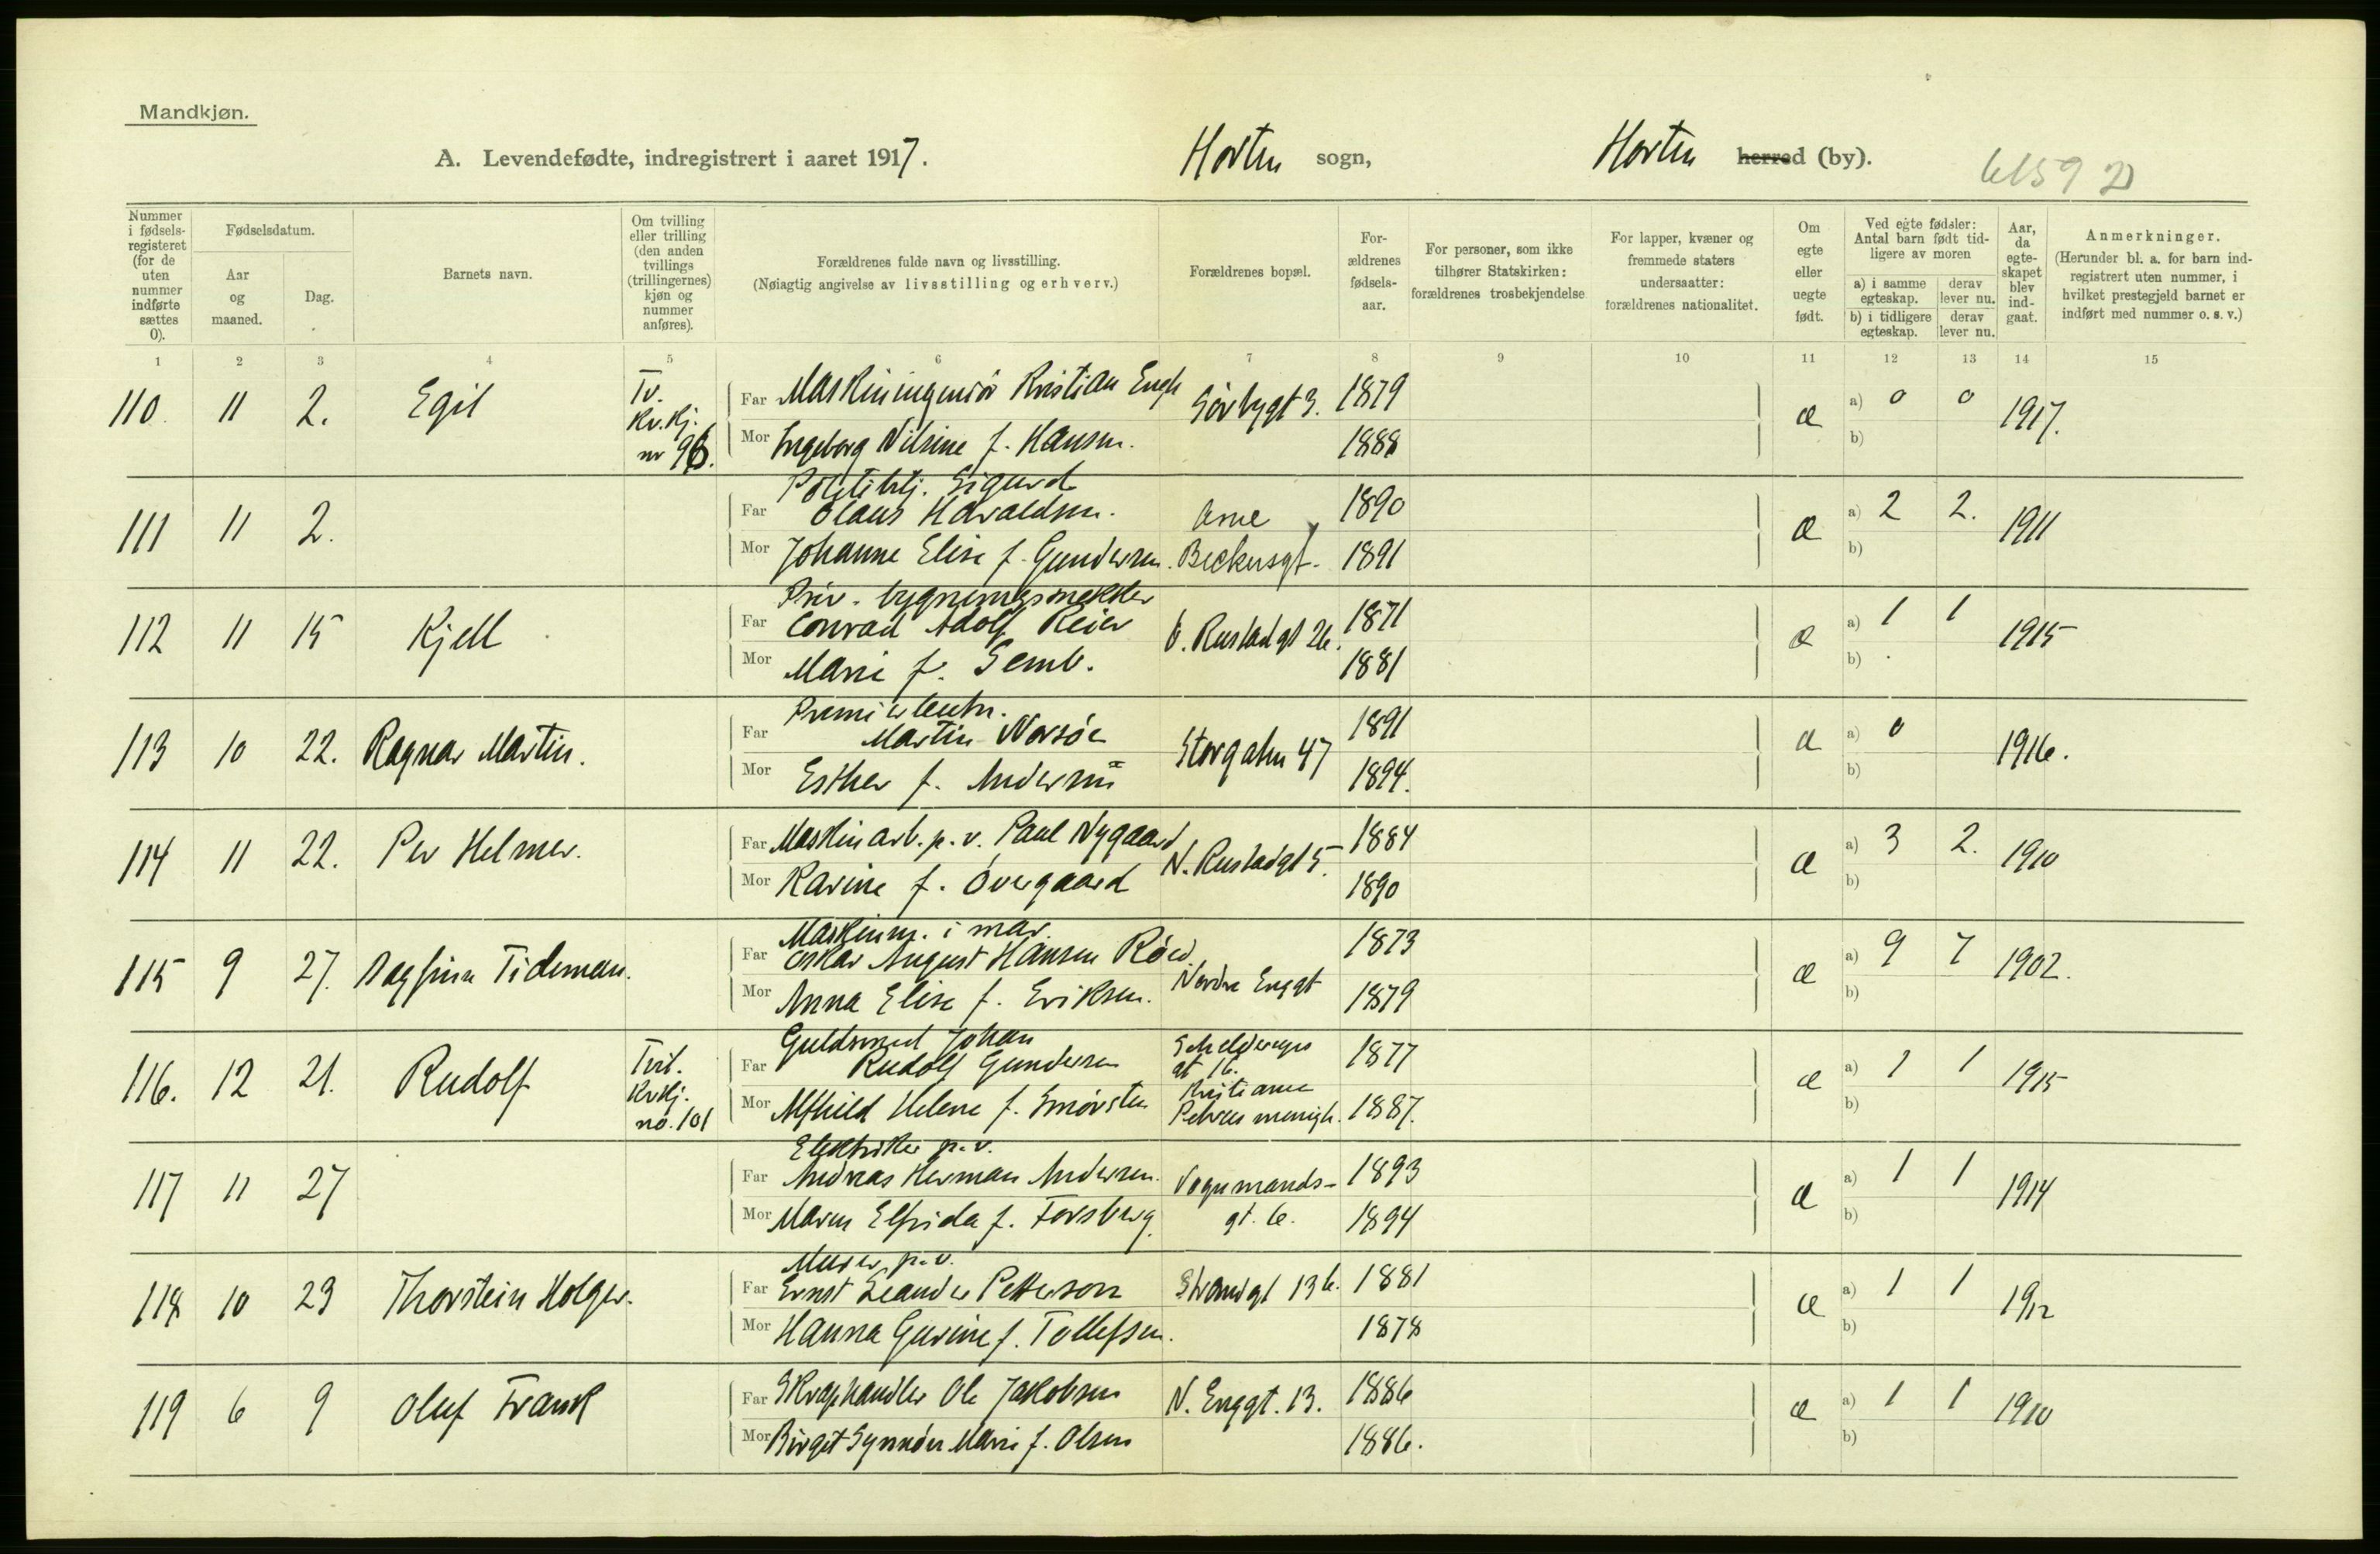 Mandkjøn.
A. Levendefødte, indregistrert i aaret 1917. Horten sogn, Horten herred (by).
Nummer i fødsels-registeret (for de uten nummer indførte sættes 0).
Fødselsdatum.
Aar og maaned.
Dag.
Barnets navn.
Om tvilling eller trilling (den anden tvillings (trillingernes) kjøn og nummer anføres).
Forældrenes fulde navn og livsstilling.
(Nøiagtig angivelse av livsstilling og erhverv.)
Forældrenes bopæl.
For-ældrenes fødsels-aar.
For personer, som ikke tilhører Statskirken: forældrenes trosbekjendelse
For lapper, kvæner og fremmede staters undersaatter: forældrenes nationalitet.
Om egte eller uegte født.
Ved egte fødsler: Antal barn født tid-ligere av moren
a) i samme egteskap.
derav lever nu.
b) i tidligere egteskap.
derav lever nu.
Aar, da egte-skapet blev ind-gaat.
Anmerkninger.
(Herunder bl. a. for barn ind-registrert uten nummer, i hvilket prestegjeld barnet er indført med nummer o. s. v.)
1 2 3 4 5 6 7 8 9 10 11 12 13 14 15
110. 11 2. Egil Tv. Kv.kj. nr 96.
Far Maskiningeniør Kristian Engh 1879 æ a) 0 0 1917.
Mor Ingeborg Nilsine f. Hansen. 1888 b)
111 11 2.
Politibtj. Sigurd
Far Olaus Havaldsen. Arne 1890 æ a) 2 2. 1911
Mor Johanne Elise f. Gundersen. Beckersgt. 1891 b)
112 11 15 Kjell
Priv. bygningssnekker
Far Conrad Adolf Reier Ø. Rustadgt 26. 1871 æ a) 1 1 1915
Mor Marie f. Semb. 1881 b)
113 10 22. Ragnar Martin.
Premierleutn.
Far Martin Norsøe Storgaten 47 1891 æ a) 0 1916.
Mor Esther f. Andersen 1894. b)
114 11 22. Per Helmer.
Far Maskinarb. p. v. Paul Nygaard N. Rustadgt 5. 1884 æ a) 3 2. 1910
Mor Karine f. Overgaard 1890 b)
115 9 27. Dagfinn Tideman.
Maskinm. i mar.
Far Oskar August Hansen Röed. Nordre Enggt 1873 æ a) 9 7 1902.
Mor Anna Elise f. Eriksen. 1879 b)
116. 12 21. Rudolf Kvkj. no. 101
Guldsmed Johan
Far Rudolf Gundersen gt 16. 1877 æ a) 1 1 1915
Mor Alfhild Helene f. Kristiania Petrus menigh. 1887. b)
117 11 27
Elektriker p. v.
Far Andreas Herman Andersen. Vognmands- 1893 æ a) 1 1 1914
Mor Maren Elfrida f. Forsberg. gt. 6. 1894 b)
118 10 23 Thorstein Holger.
Murer p. v.
Far Ernst Leander Petterson Strandgt 13b. 1881 æ a) 1 1 1912
Mor Hanna Gurine f. Tollefsen. 1878 b)
119 6 9 Oluf Frank
Far Skraphandler Ole Jakobsen N. Enggt. 13. 1886 æ a) 1 1 1910
Mor Birgit Synnöve Marie f. Olsen 1886. b)